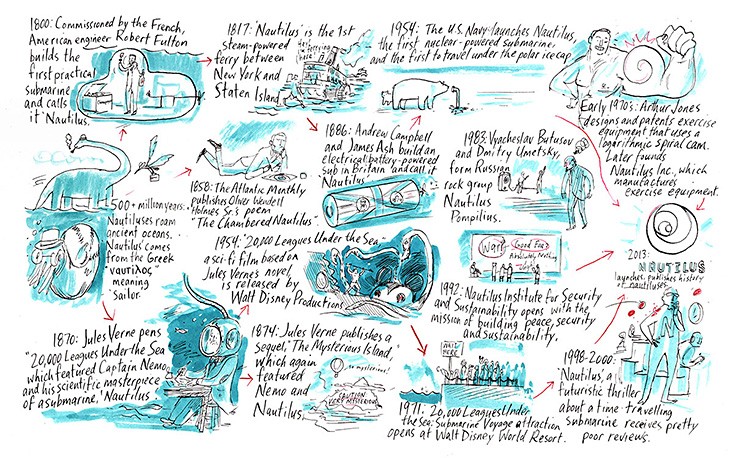 1800: Commissioned by the French,
American engineer Robert Fulton
builds the
first practical
submarine
and calls
it 'Nautilus.'
1817: 'Nautilus' is the 1st
steam-powered
ferry between
New York and
Staten Island.
1954: The U.S. Navy launches Nautilus,
the first nuclear-powered submarine,
and the first to travel under the polar ice cap.
Early 1970s: Arthur Jones
designs and patents exercise
equipment that uses a
logarithmic spiral cam.
Later founds
Nautilus Inc., which
manufactures
exercise equipment.
500+ million years:
Nautiluses roam
ancient oceans.
'Nautilus' comes
from the Greek
ναυτίλος,
meaning
sailor.
1858: The Atlantic Monthly
publishes Oliver Wendell
Holmes Sr.'s poem
"The Chambered Nautilus".
1886: Andrew Campbell
and James Ash build an
electrical battery-powered
sub in Britain and call it
Nautilus.
1983: Vyacheslav Butusov
and Dmitry Umetsky,
form Russian
rock group
Nautilus
Pompilius.
1954: "20,000 Leagues Under the Sea"
a sci-fi film based on
Jules Verne's novel,
is released by
Walt Disney Productions
War
Good For?
Absolutely Nothing
1992: Nautilus Institute for Security
and Sustainability opens with the
mission of building peace, security
and sustainability.
2013:
NAUTILUS
launches, publishes history
of nautiluses.
1870: Jules Verne pens
"20,000 Leagues Under the Sea
which featured Captain Nemo
and his scientific masterpiece
of a submarine, 'Nautilus'.
1874: Jules Verne publishes a
sequel, 'The Mysterious Island,'
which again
featured
Nemo and
Nautilus.
so mysterious!
CAUTION
VERY MYSTERIOUS
WAIT
HERE
1971: '20,000 Leagues Under
the Sea: Submarine Voyage' attraction
opens at Walt Disney World Resort.
1998-2000:
'Nautilus', a
futuristic thriller
about a time-travelling
submarine receives pretty
poor reviews.